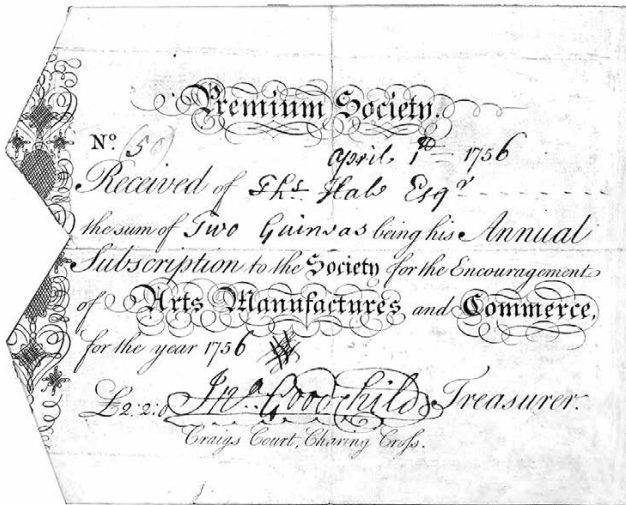 Premium Society.
No. 50 April 1st 1756
Received of Thos. Hale Esqr
the sum of Two Guineas being his Annual
Subscription to the Society for the Encouragement
of Arts Manufactures and Commerce,
for the year 1756
£2:2:0 Jno. Goodchild Treasurer.
Craigs Court, Charing Cross.